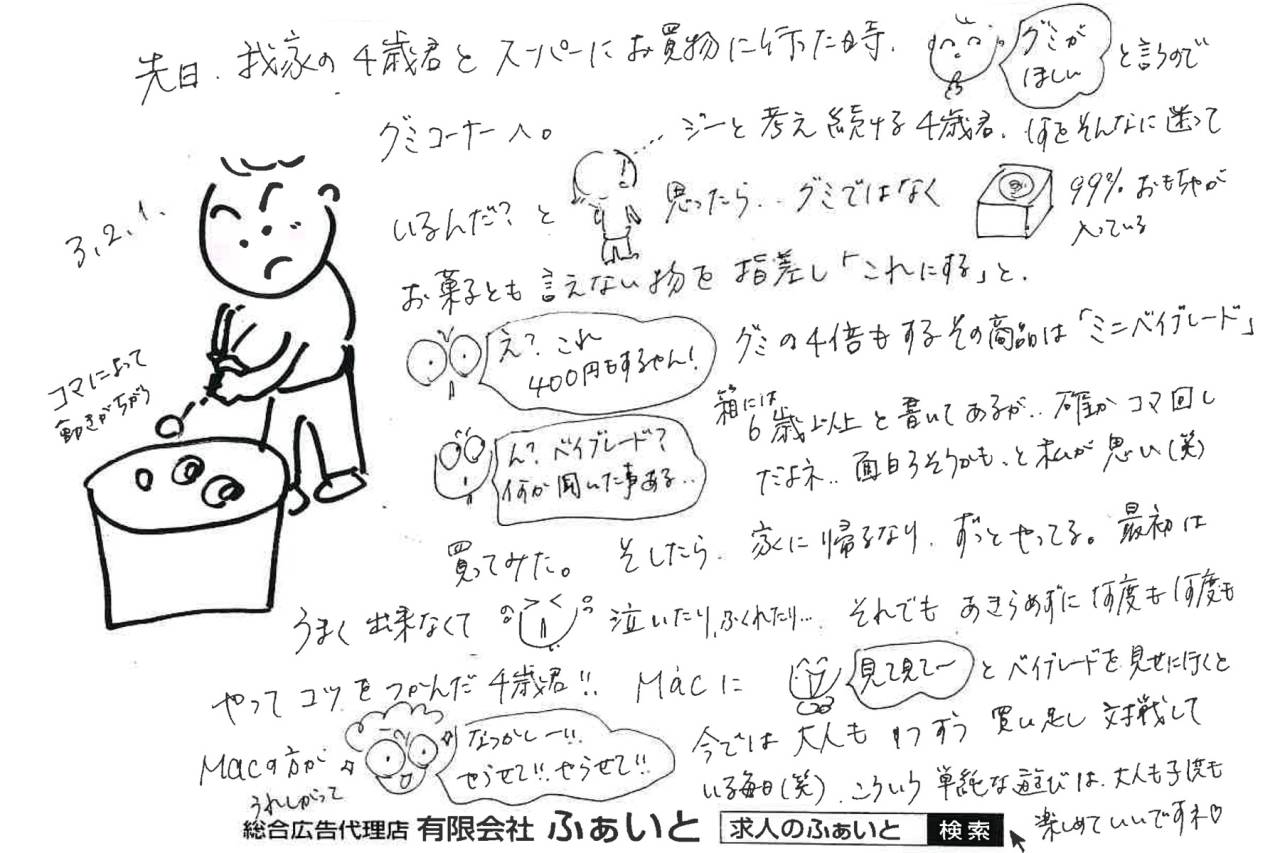 先日、我家の4歳君とスーパーにお買物に行った時、
グミが
ほしい
と言うので
グミコーナーへ。
ジーと考え続ける4歳君。何をそんなに迷って
いるんだ?と
思ったら..グミではなく
99%おもちゃが
入っている
お菓子とも言えない物を指差し「これにする」と.
え?これ
400円もするやん!
グミの4倍もするその商品は「ミニベイブレード」
箱には
6歳以上と書いてあるが..確かコマ回し
ん?ベイブレード?
何か聞いた事ある..
だよネ..面白そうかも、と私が思い(笑)
買ってみた。そしたら、家に帰るなり、ずっとやってる。最初は
うまく出来なくて
泣いたり,ふくれたり….それでもあきらめずに何度も何度も
やってコツをつかんだ4歳君!!
Macに
見て見て〜
とベイブレードを見せに行くと
Macの方が
うれしがって
なつかしー!!
やらせて!!やらせて!!
今では大人も
買い足し対戦して
いる毎日(笑)、こういう単純な遊びは、大人も子供も
楽しめていいですネ♡
3,2,1、
コマによって
動きがちがう
総合広告代理店 有限会社 ふぁいと 求人のふぁいと 検索